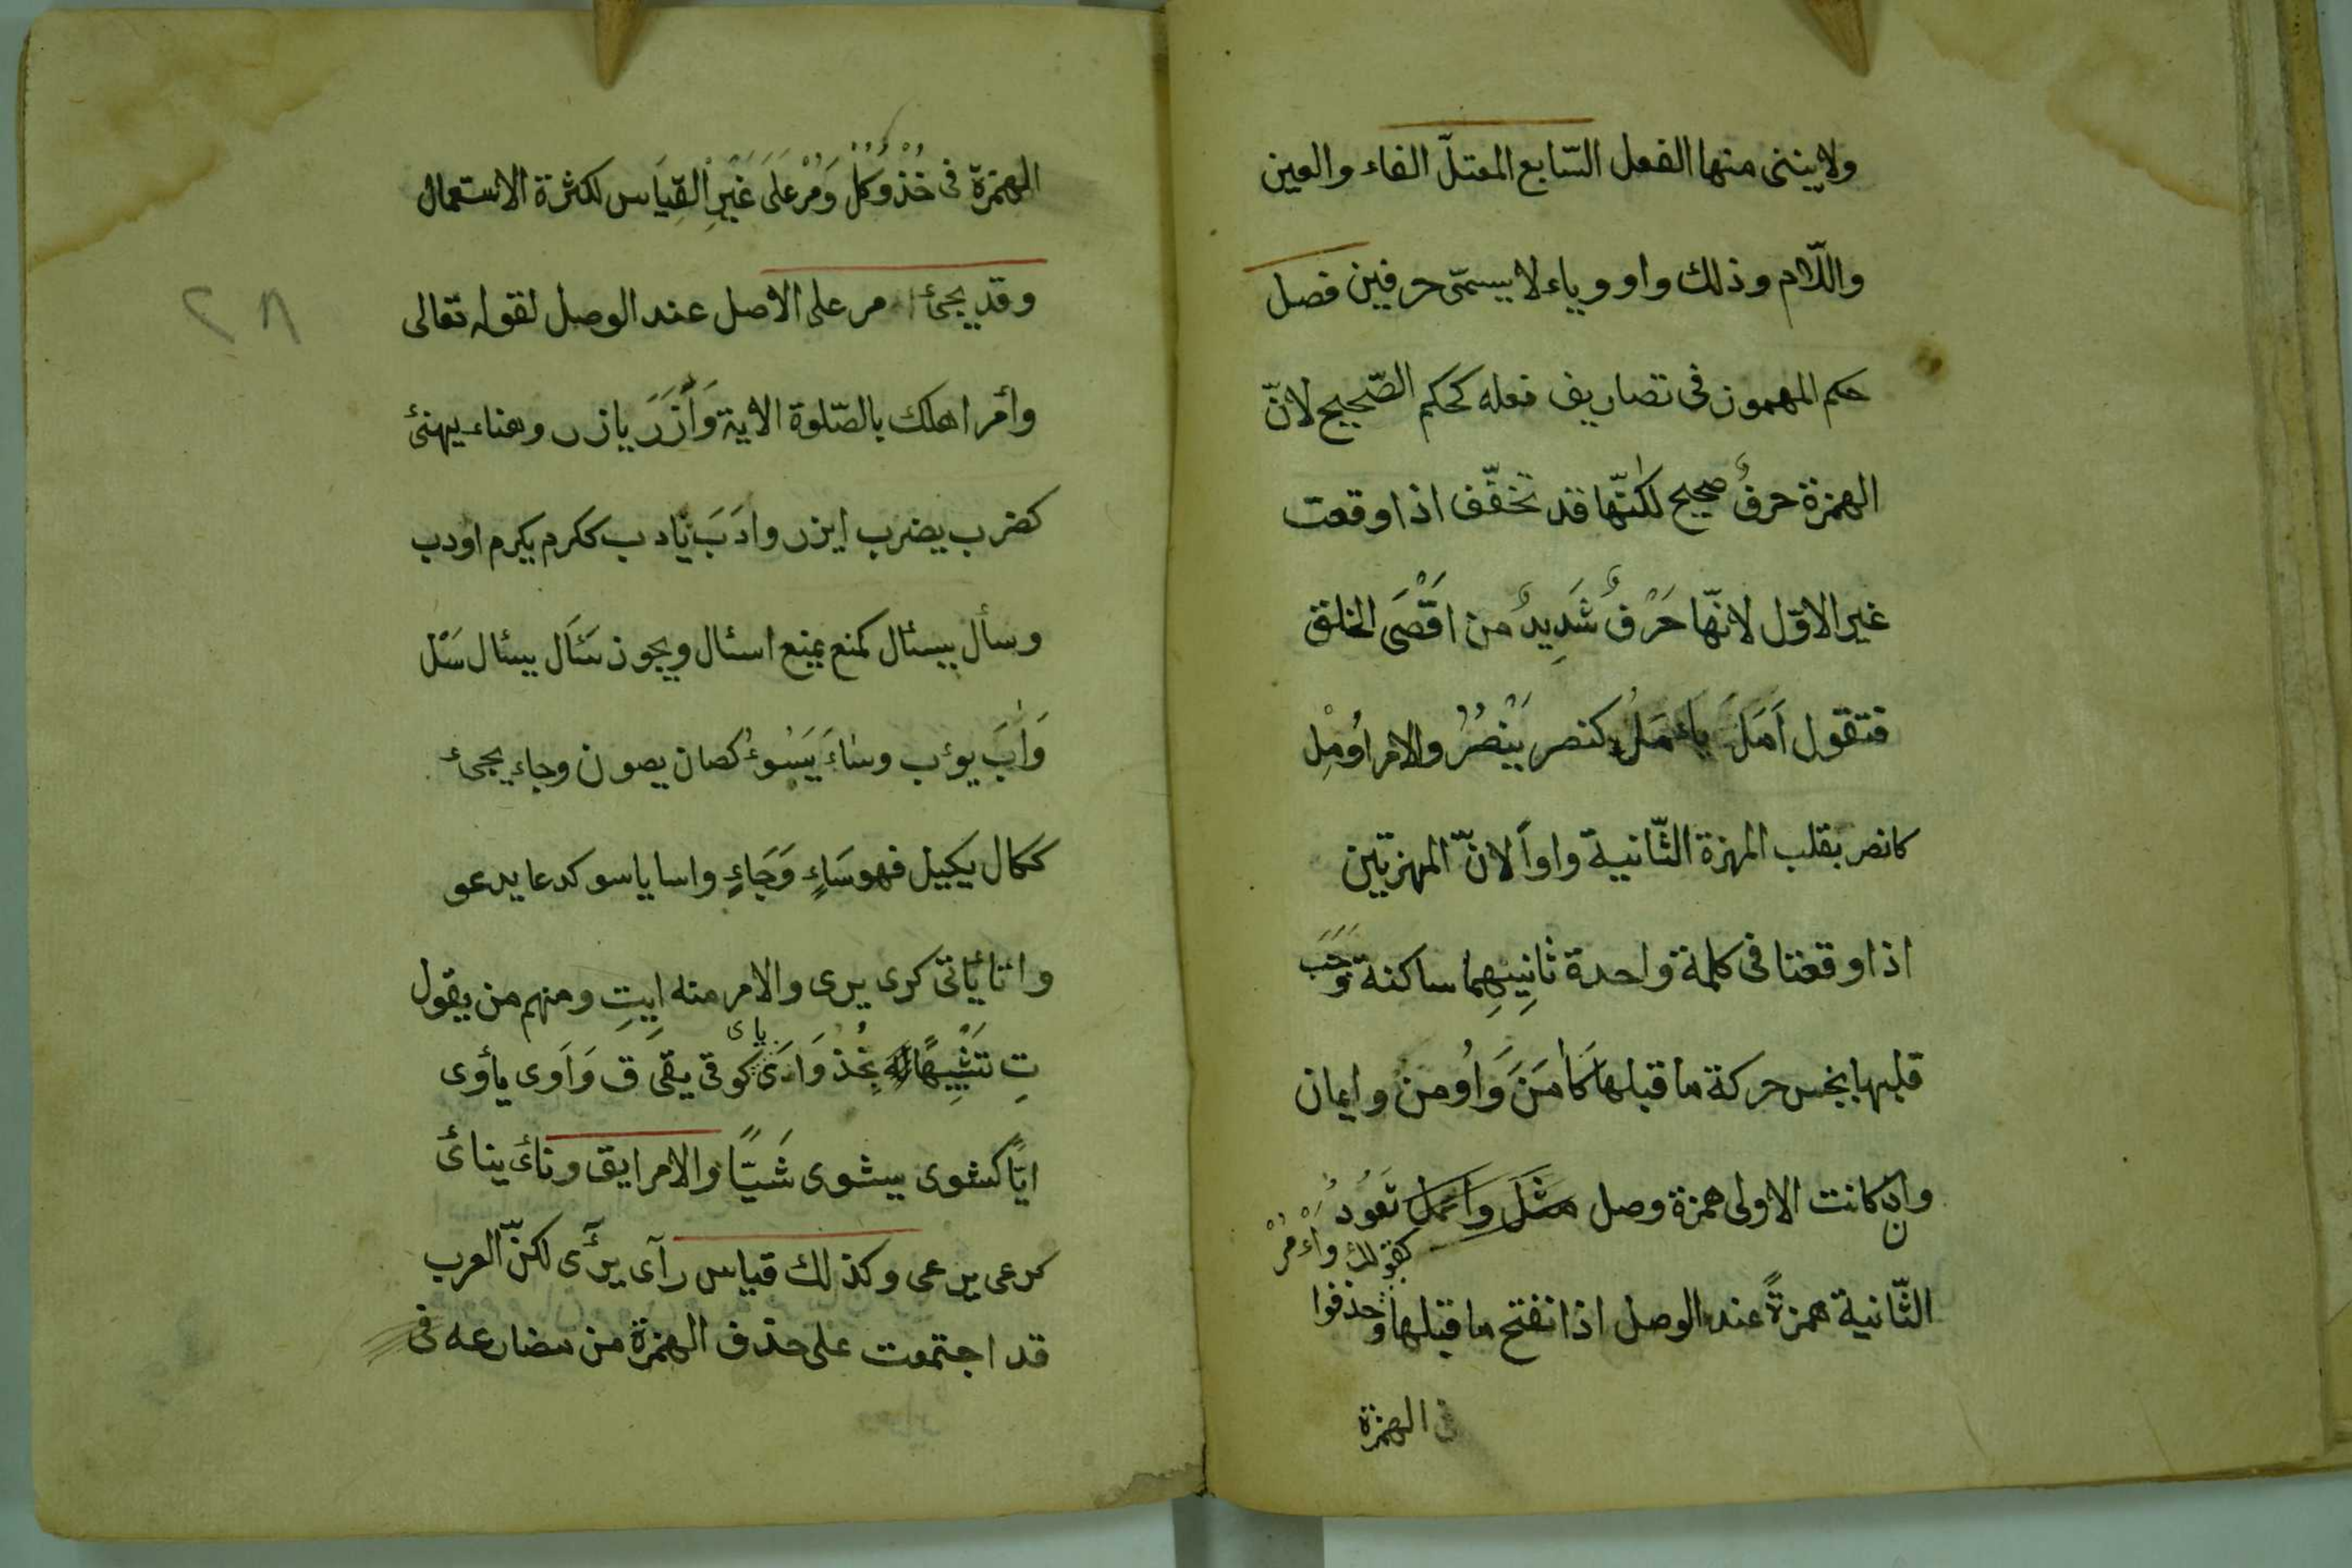 ولا يبنى منها الفعل السّابع المعتلّ الفاء والعين
واللّام وذلك واو وياء لا يسمّى حرفين فصل
حكم المهموز فى تصاريف فعله كحكم الصّحيح لانّ
الهمزة حرفٌ صحيح لكنّها قد تخفّف اذا وقعت
غير الاوّل لانّها حَرْفٌ شَدِيدٌ من اَقْصَى الحلق
فتقول اَمَلَ يأمَلُ كنصر يَنْصُرُ والامر اُومِلْ
كانصر بقلب الهمزة الثّانية واواً لانّ الهمزتين
اذا وقعتا فى كلمة واحدة ثانِيهِما ساكنة وَجَبَ
قلبها بجنس حركة ما قبلها كَاٰمَنَ وَاُومن وايمان
وان كانت الاولى همزة وصل تَعُودُ
كقولك وَأْمُرْ
الثّانية همزةً عند الوصل اذا نفتح ما قبلها وحذفوا
الهمزة
الهمزة فى خُذْ وَكُلْ وَمُرْ عَلَى غَيْرِ القِيَاس لكثرة الاستعمال
وقد يجئ مر على الاصل عند الوصل لقوله تعالى
وأمر اهلك بالصّلوة الاية وَأَزَرَ يازر وهناء يهنئ
كضرب يضرب ايزر وادَبَ يادب ككرم يكرم اودب
وسأل يسئال كمنع يمنع اسئال ويجوز سَئاَل يسئال سَئْل
وَاٰبَ يوٴب وساءَ يَسُوءُ كصان يصون وجاء يجئ
ككال يكيل فهو سَاءٍ وَجَاءٍ واسا ياسو كدعا يدعو
واتا يَاتى كرى يرى والامر منه اِيتِ ومنهم من يقول
تِ تَشْبِيهًا بِخُذْ وَاَىَ ياى كوقى يقى ق وَاَوى يأوى
ايًّا كشوى يشوى شَيًّا والامر ايق ونائ ينائ
كرعى يرعى وكذلك قياس رآى يرآى لكنّ العرب
قد اجتمعت على حذف الهمزة من مضارعه فى
٢٨